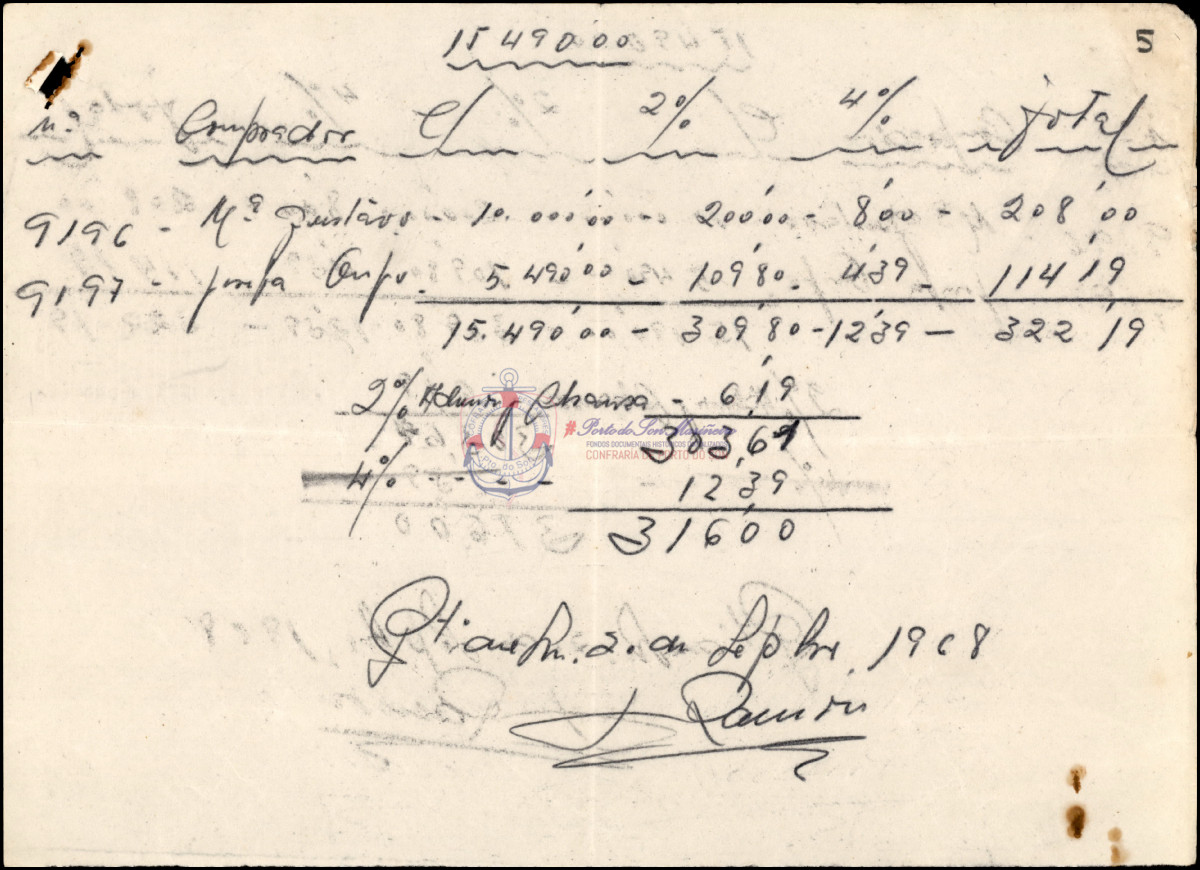 5
15.490'00
n.º Comprador C/ 2% 4% Total
9196 - Mª Gustavo - 10.000'00 - 200'00 - 8'00 - 208'00
9197 - 5.490'00 - 109'80 - 4'39 - 114'19
15.490'00 - 309'80 - 12'39 - 322'19
2% - 6'19
#Porto do Son Mariñeiro
FONDOS DOCUMENTAIS HISTÓRICOS DIXITALIZADOS
CONFRARÍA DE PORTO DO SON
4% - - - - 12'39
316'00
2. 1968
Ramón